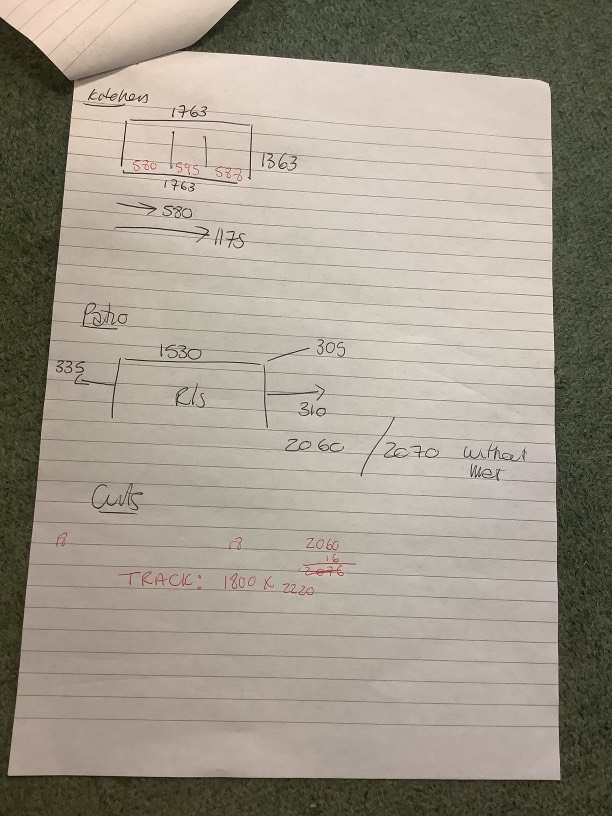 Kitchen
1763
580 595 588 1363
1763
580
1175
Patio
1530 305
335
R/s
310
2060 / 2070 without
Curts
2060
16
2076
TRACK: 1800 x 2220